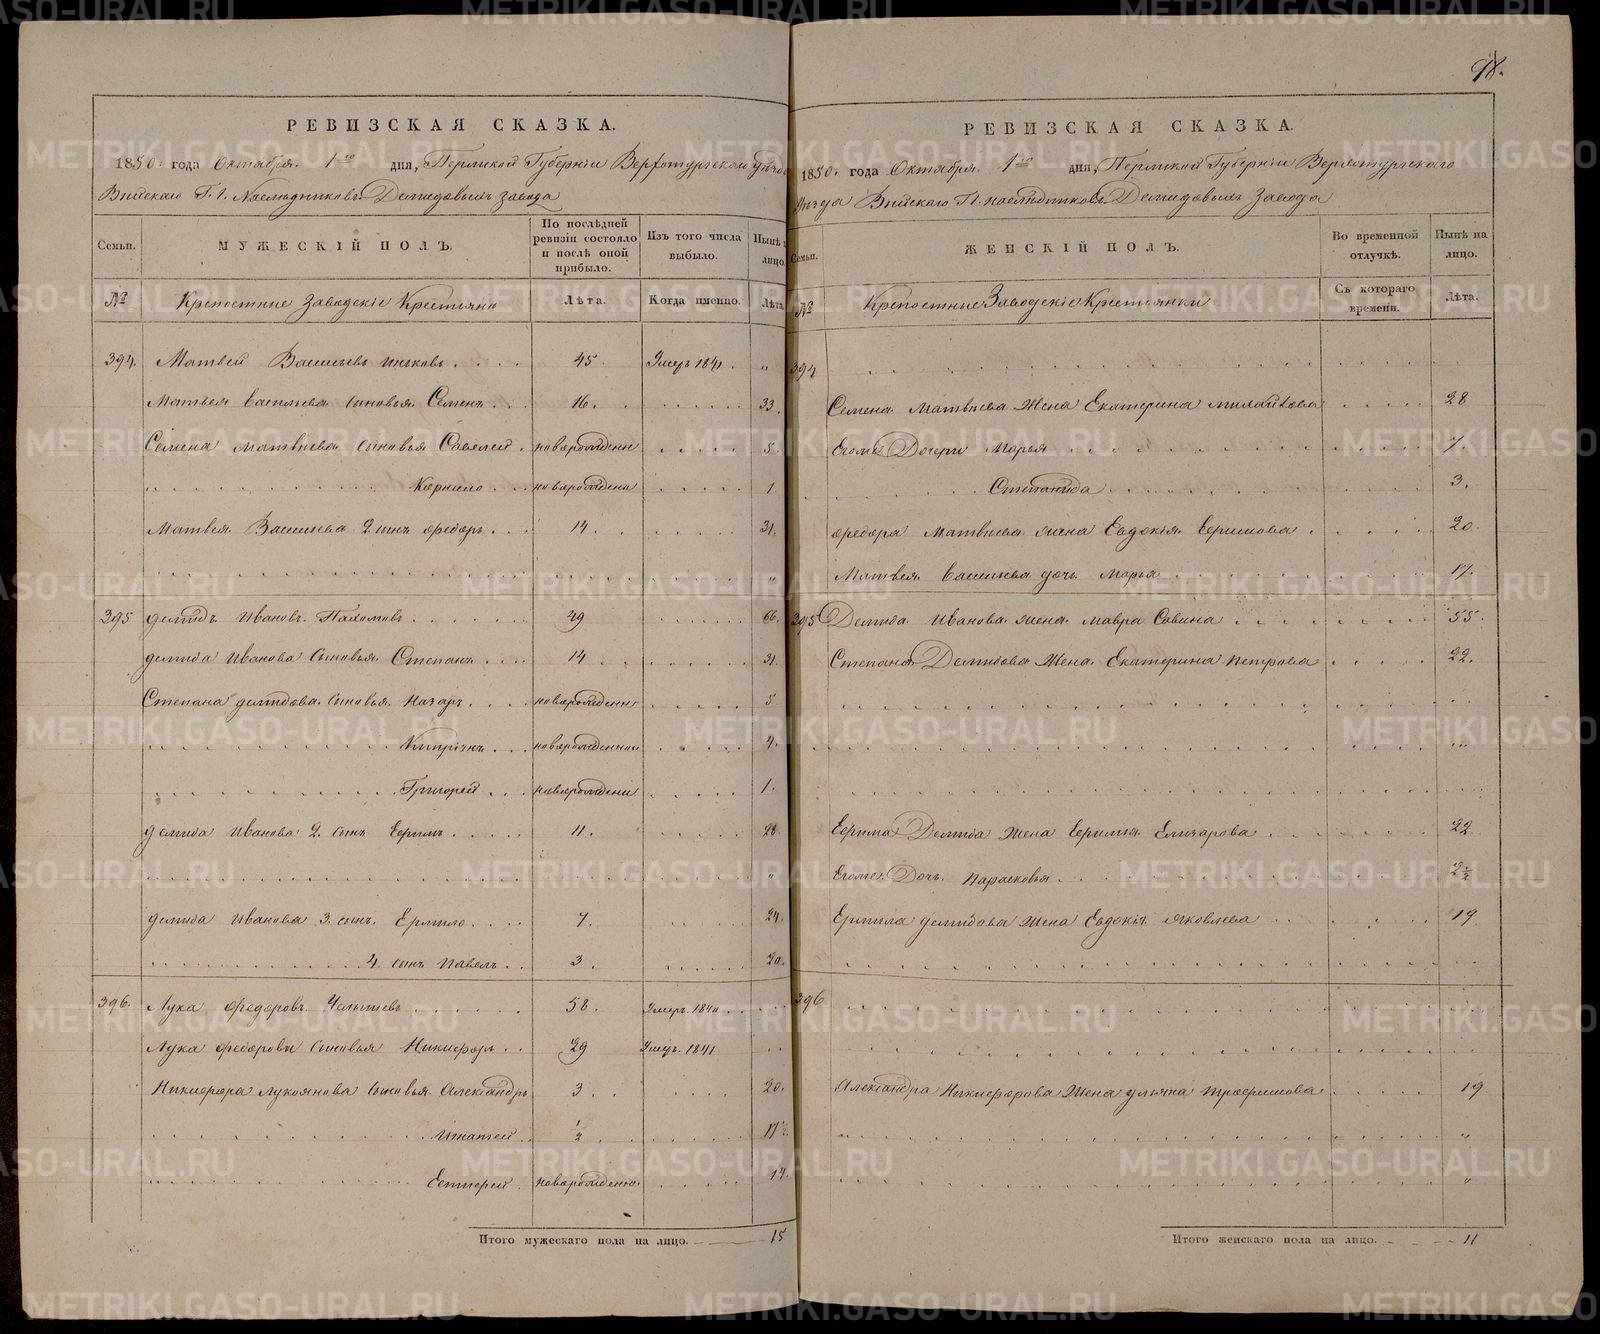 98.
РЕВИЗСКАЯ СКАЗКА.
1850 года Октября 1го дня, Пермской Губерніи Верхотурскаго уѣзда
Вийскаго Г.г. Наслѣдниковъ Демидовыхъ завода
Семьи. МУЖЕСКІЙ ПОЛЪ. По послѣдней ревизіи состояло и послѣ оной прибыло. Изъ того числа выбыло. Нынѣ на лицо.
№ Крепостные Заводскіе Крестьяна Лѣта. Когда именно. Лѣта
394. Матвей Васильевъ 45 Умеръ 1841. "
Матвея Васильева сыновья. Семенъ 16. 33.
Семена Матвиева сыновья Савелей новорожденн 5.
Корнило новорожденн 1
Матвея Васильева 2 сынъ Федоръ 14. 31.
395 Демидъ Ивановъ Пахомовъ 49 66.
Демида Иванова Сыновья. Степанъ 14 31
Степана Демидова. Сыновья. Назаръ новорожденн 5
Кипріянъ новорожденнои 4.
Григорей новорожденн 1.
Демида Иванова 2. сынъ Ефимъ 11. 28
Демида Иванова 3. сынъ. Ермило 7. 24.
4. сынъ Павелъ 3. 20.
396. Лука Федоровъ Челышевъ 58. Умеръ. 1840
Лука Федорови Сыновья Никифоръ 29 Умеръ. 1841
Никифора Лукоянова Сыновья. Александръ 3 20.
Игнатей 1/2 17 1/2
Евтифей новорожденн 14.
Итого мужескаго пола на лицо. 15
РЕВИЗСКАЯ СКАЗКА.
1850. года Октября 1го дня, Пермской Губерніи Верхотурскаго
Уѣзда Вийскаго Гг. наслѣдниковъ Демидовыхъ Завода
Семьи. ЖЕНСКІЙ ПОЛЪ. Во временной отлучкѣ. Нынѣ на лицо.
№ Крепостные Заводскіе Крестьянки Съ котораго времени. Лѣта.
394
Семена Матвиева Жена Екатерина Михайлова 28
Егоже Дочери Марья 7.
Степанида 3.
Федора Матвиева жена Евдокія Ефимова 20
Матвея Васильева дочь Марья 17.
395 Демида Иванова жена Мавра Савина 55.
Степана Демидова Жена Екатерина Петрова 22.
Ефима Демида Жена Ефимья Елизарова 22
Егоже Дочь Парасковья 2 1/2
Ермила Демидова Жена Евдокія Яковлева 19
396
Александра Никифорова Жена Ульяна 19
Итого женскаго пола на лицо. 11
METRIKI.GASO-URAL.RU